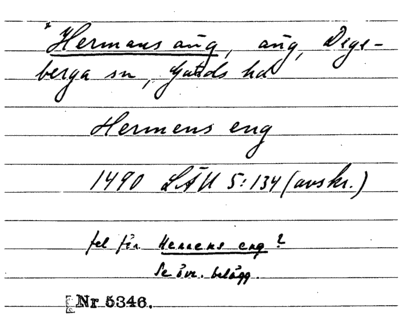 *Hermans äng, äng, Dege-
berga sn, Gärds hd
Hermens eng
1490 LÄU 5:134 (avskr.)
fel för Hemmens eng?
Se övr. belägg.
Nr 5346.